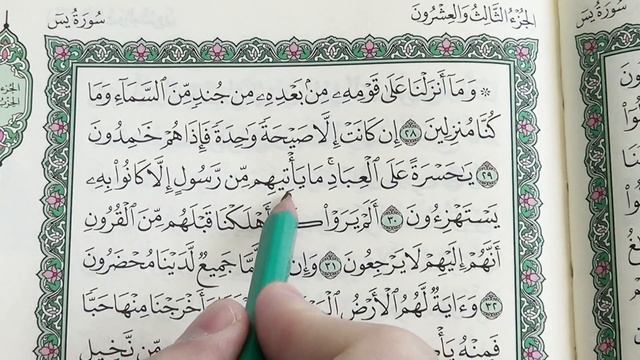 الجُزْءُ الثَّالِثُ وَالعِشْرُونَ
سُورَةُ يسٓ
۞ وَمَآ أَنزَلْنَا عَلَىٰ قَوْمِهِۦ مِنۢ بَعْدِهِۦ مِن جُندٍ مِّنَ ٱلسَّمَآءِ وَمَا
كُنَّا مُنزِلِينَ ٢٨ إِن كَانَتْ إِلَّا صَيْحَةً وَٰحِدَةً فَإِذَا هُمْ خَٰمِدُونَ
٢٩ يَٰحَسْرَةً عَلَى ٱلْعِبَادِ ۚ مَا يَأْتِيهِم مِّن رَّسُولٍ إِلَّا كَانُوا۟ بِهِۦ
يَسْتَهْزِءُونَ ٣٠ أَلَمْ يَرَوْا۟ أَهْلَكْنَا قَبْلَهُم مِّنَ ٱلْقُرُونِ
أَنَّهُمْ إِلَيْهِمْ لَا يَرْجِعُونَ ٣١ وَإِن لَّمَّا جَمِيعٌ لَّدَيْنَا مُحْضَرُونَ
٣٢ وَءَايَةٌ لَّهُمُ ٱلْأَرْضُ وَأَخْرَجْنَا مِنْهَا حَبًّا
فَمِنْهُ مِّن نَّخِيلٍ
سُورَةُ يسٓ